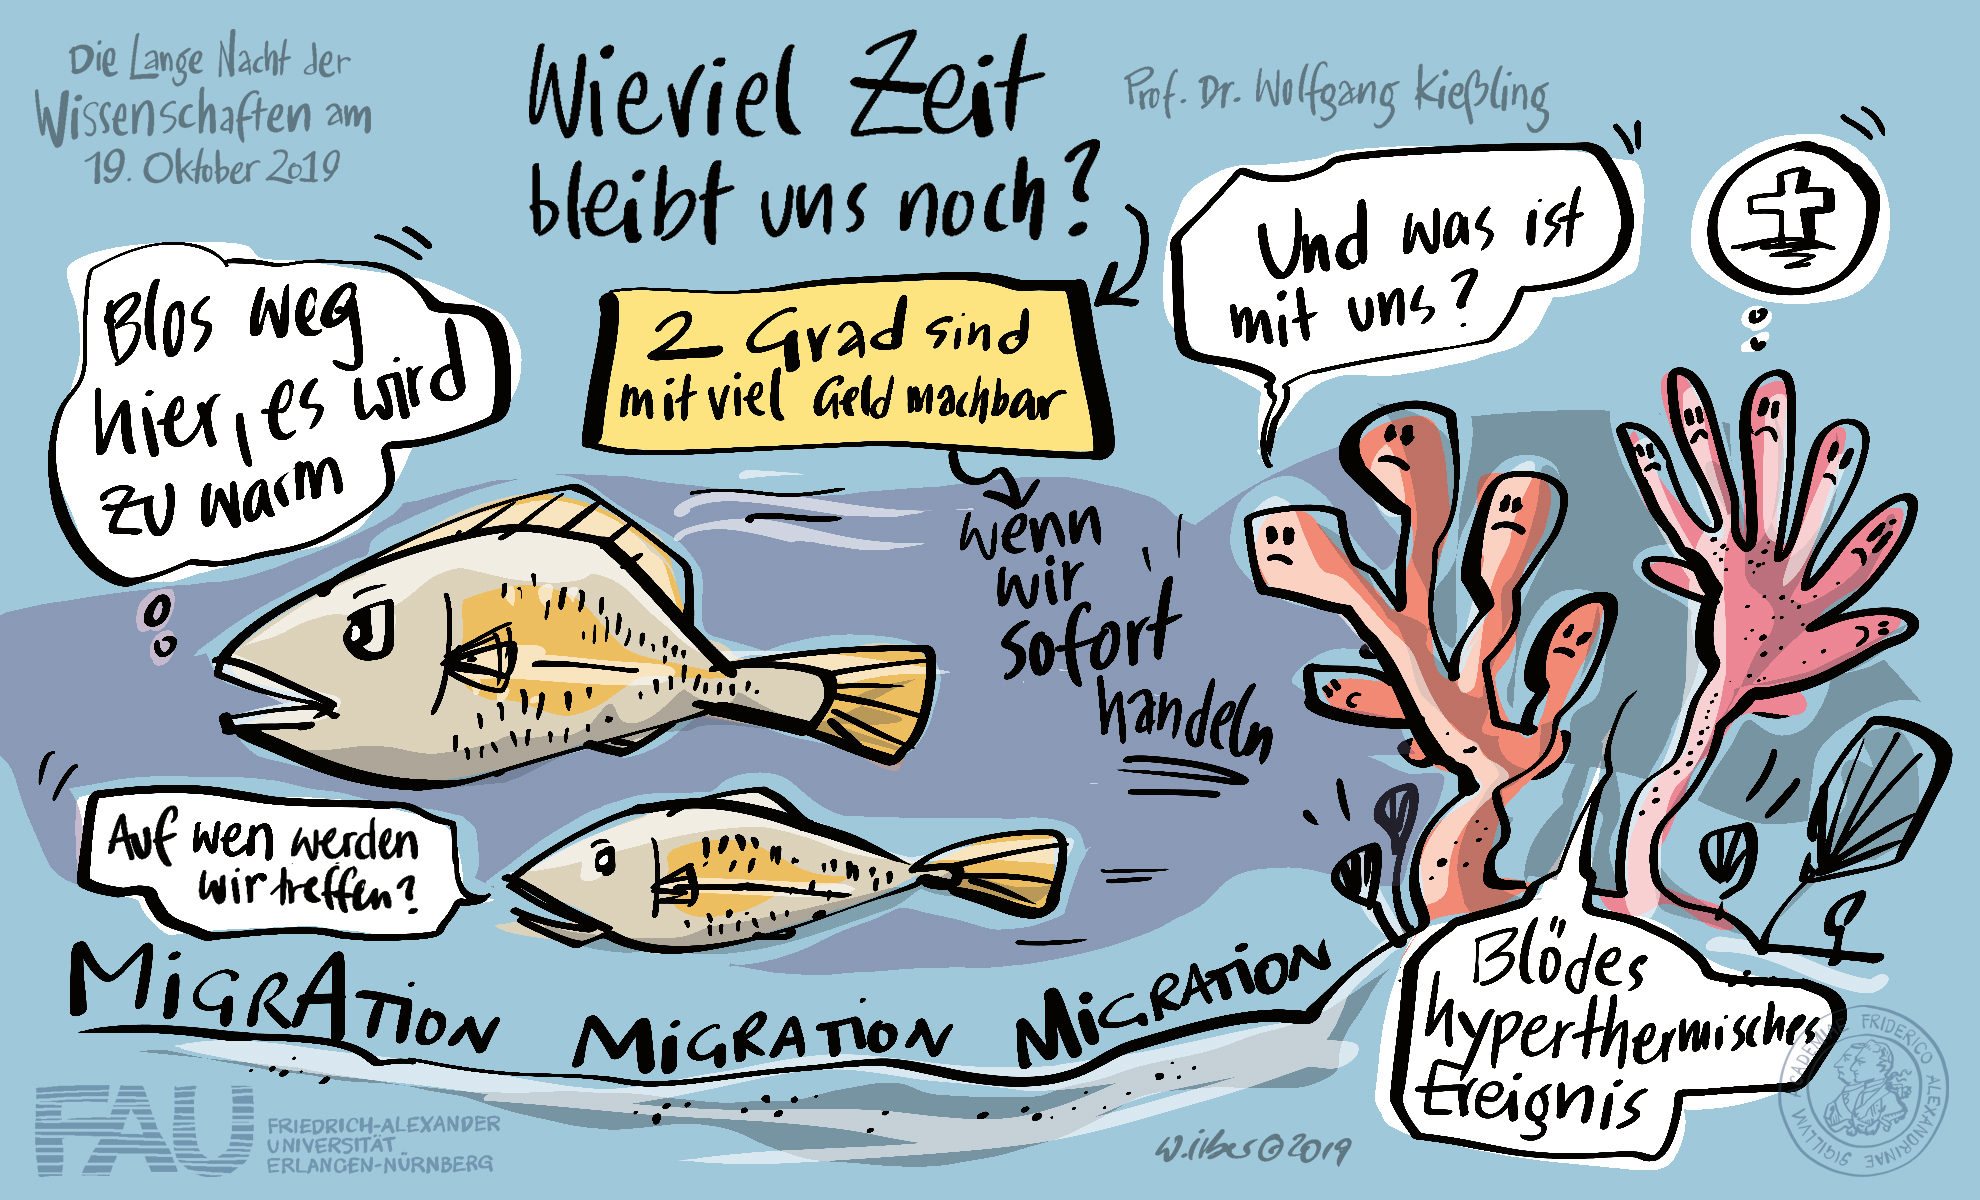 Die Lange Nacht der
Wissenschaften am
19. Oktober 2019
Wieviel Zeit
bleibt uns noch?
Prof. Dr. Wolfgang Kießling
Blos weg
hier, es wird
zu warm
2 Grad sind
mit viel Geld machbar
wenn
wir
sofort
handeln
Und was ist
mit uns?
Auf wen werden
wir treffen?
MiGRATiON MiGRATiON MiGRATiON
Blödes
hyperthermisches
Ereignis
FAU
FRIEDRICH-ALEXANDER
UNIVERSITÄT
ERLANGEN-NÜRNBERG
©2019
SIGILLVM ACADEMIAE FRIDERICO ALEXANDRINAE